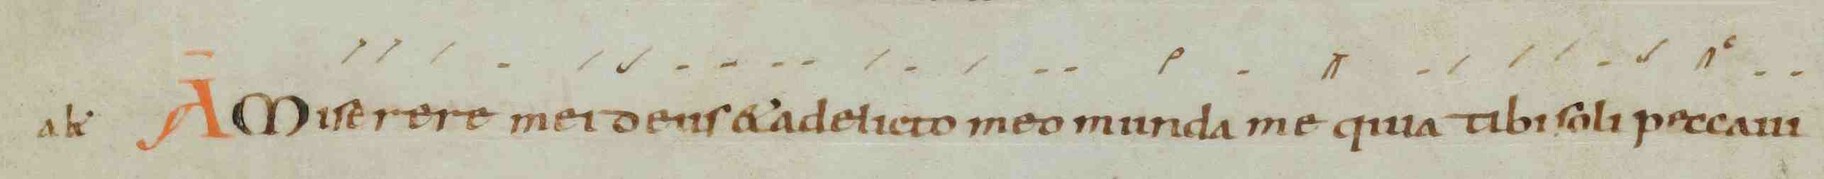 ak A Miserere mei deus & a delicto meo munda me quia tibi soli peccaui